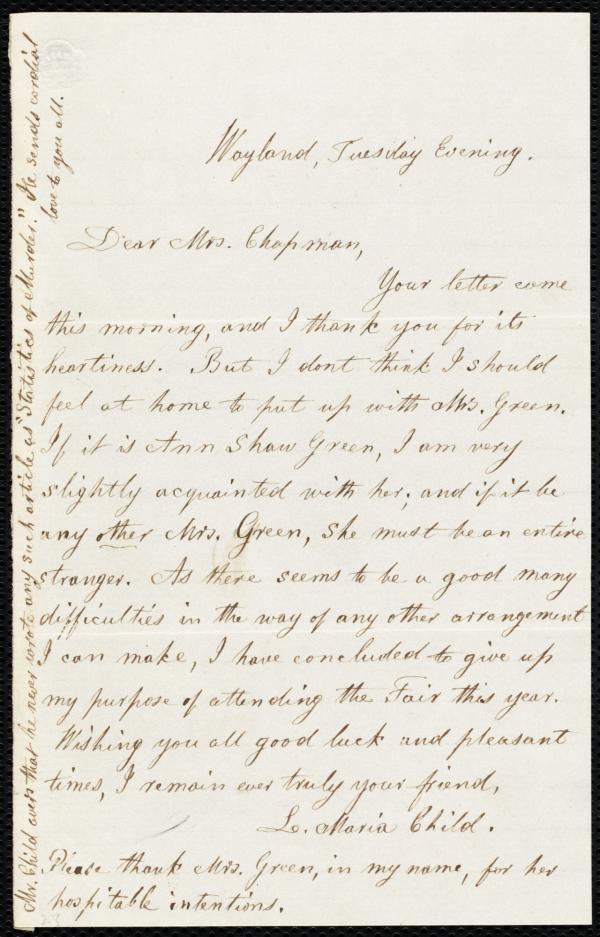 Wayland, Tuesday Evening.
Dear Mrs. Chapman,
Your letter came
this morning, and I thank you for its
heartiness. But I dont think I should
feel at home to put up with Mrs. Green.
If it is Ann Shaw Green, I am very
slightly acquainted with her; and if it be
any other Mrs. Green, she must be an entire
stranger. As there seems to be a good many
difficulties in the way of any other arrangement
I can make, I have concluded to give up
my purpose of attending the Fair this year.
Wishing you all good luck and pleasant
times, I remain ever truly your friend,
L. Maria Child.
Please thank Mrs. Green, in my name, for her
hospitable intentions.
Mr. Child avers that he never wrote any such article as "Statistics of Murder." He sends cordial
love to you all.